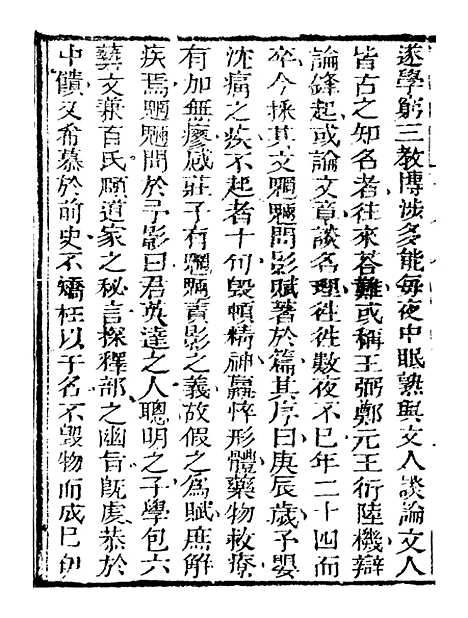 遂學躬三教博涉多能每夜中眠熟與文人談論文人
皆古之知名者往來荅難或稱王弼鄭元王衍陸機辯
論鋒起或論文章談名理往往數夜不已年二十四而
卒今採其文魍魎問影賦著於篇其序曰庚辰歲予嬰
沈痛之疾不起者十旬毀頓精神羸悴形體藥物救療
有加無瘳感莊子有魍魎責影之義故假之為賦庶解
疾焉魍魎問於予影曰君英達之人聰明之子學包六
藝文兼百氏賾道家之秘言探釋部之幽旨旣虔恭於
中饋又希慕於前史不矯枉以于名不毀物而成巳